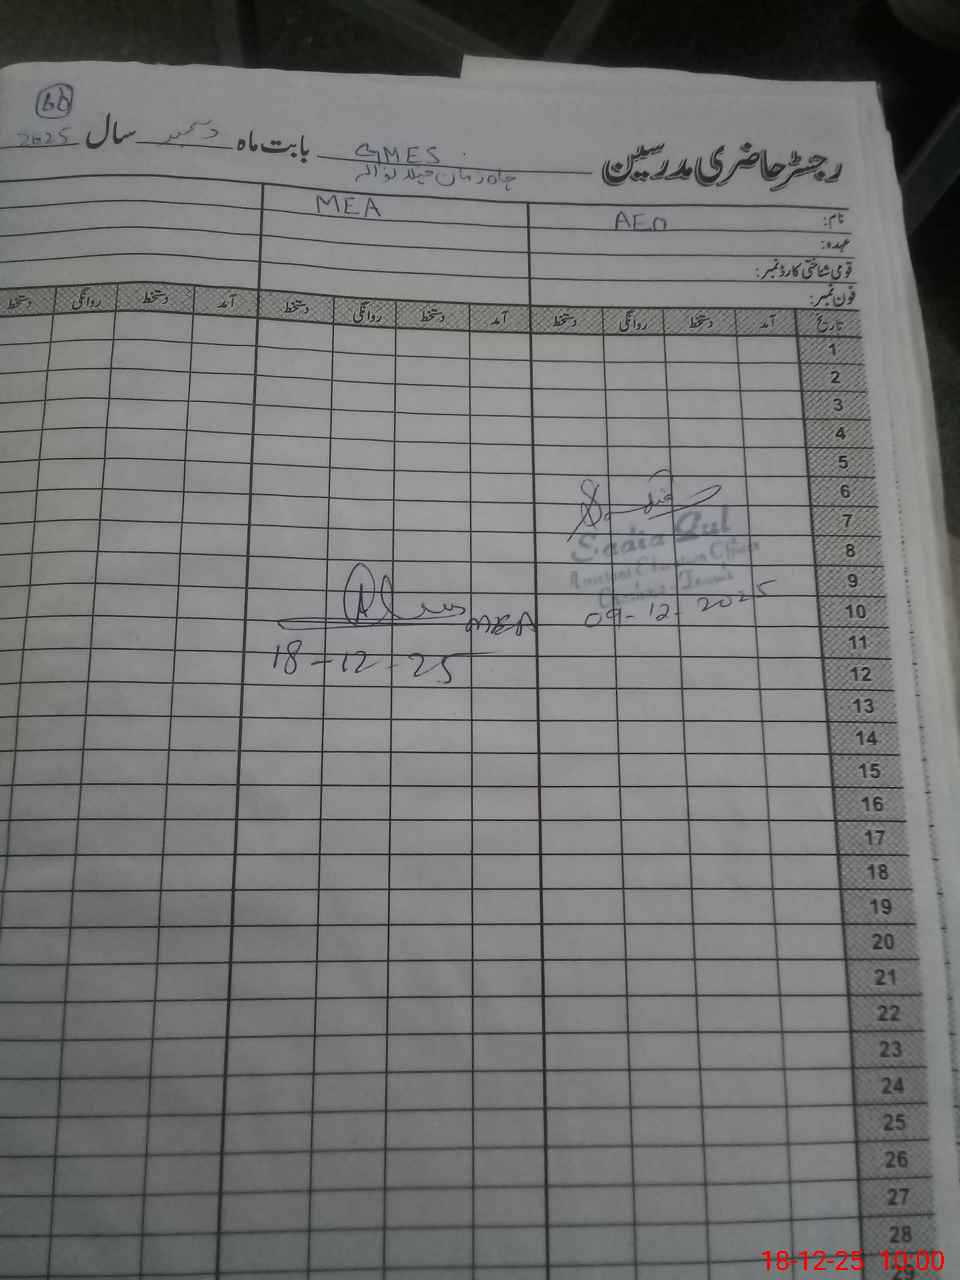 66
رجسٹر حاضری مدرسین GMES بابت ماہ دسمبر سال 2025
چاہ
نام: AEO MEA
عہدہ:
قومی شناختی کارڈ نمبر:
فون نمبر:
تاریخ آمد دستخط روانگی دستخط آمد دستخط روانگی دستخط آمد دستخط روانگی دستخط
1
2
3
4
5
6
7
Sadia Gul
8
Education Officer
9
09-12-2025
10
MEA
11
18-12-25
12
13
14
15
16
17
18
19
20
21
22
23
24
25
26
27
28
18-12-25 10:00